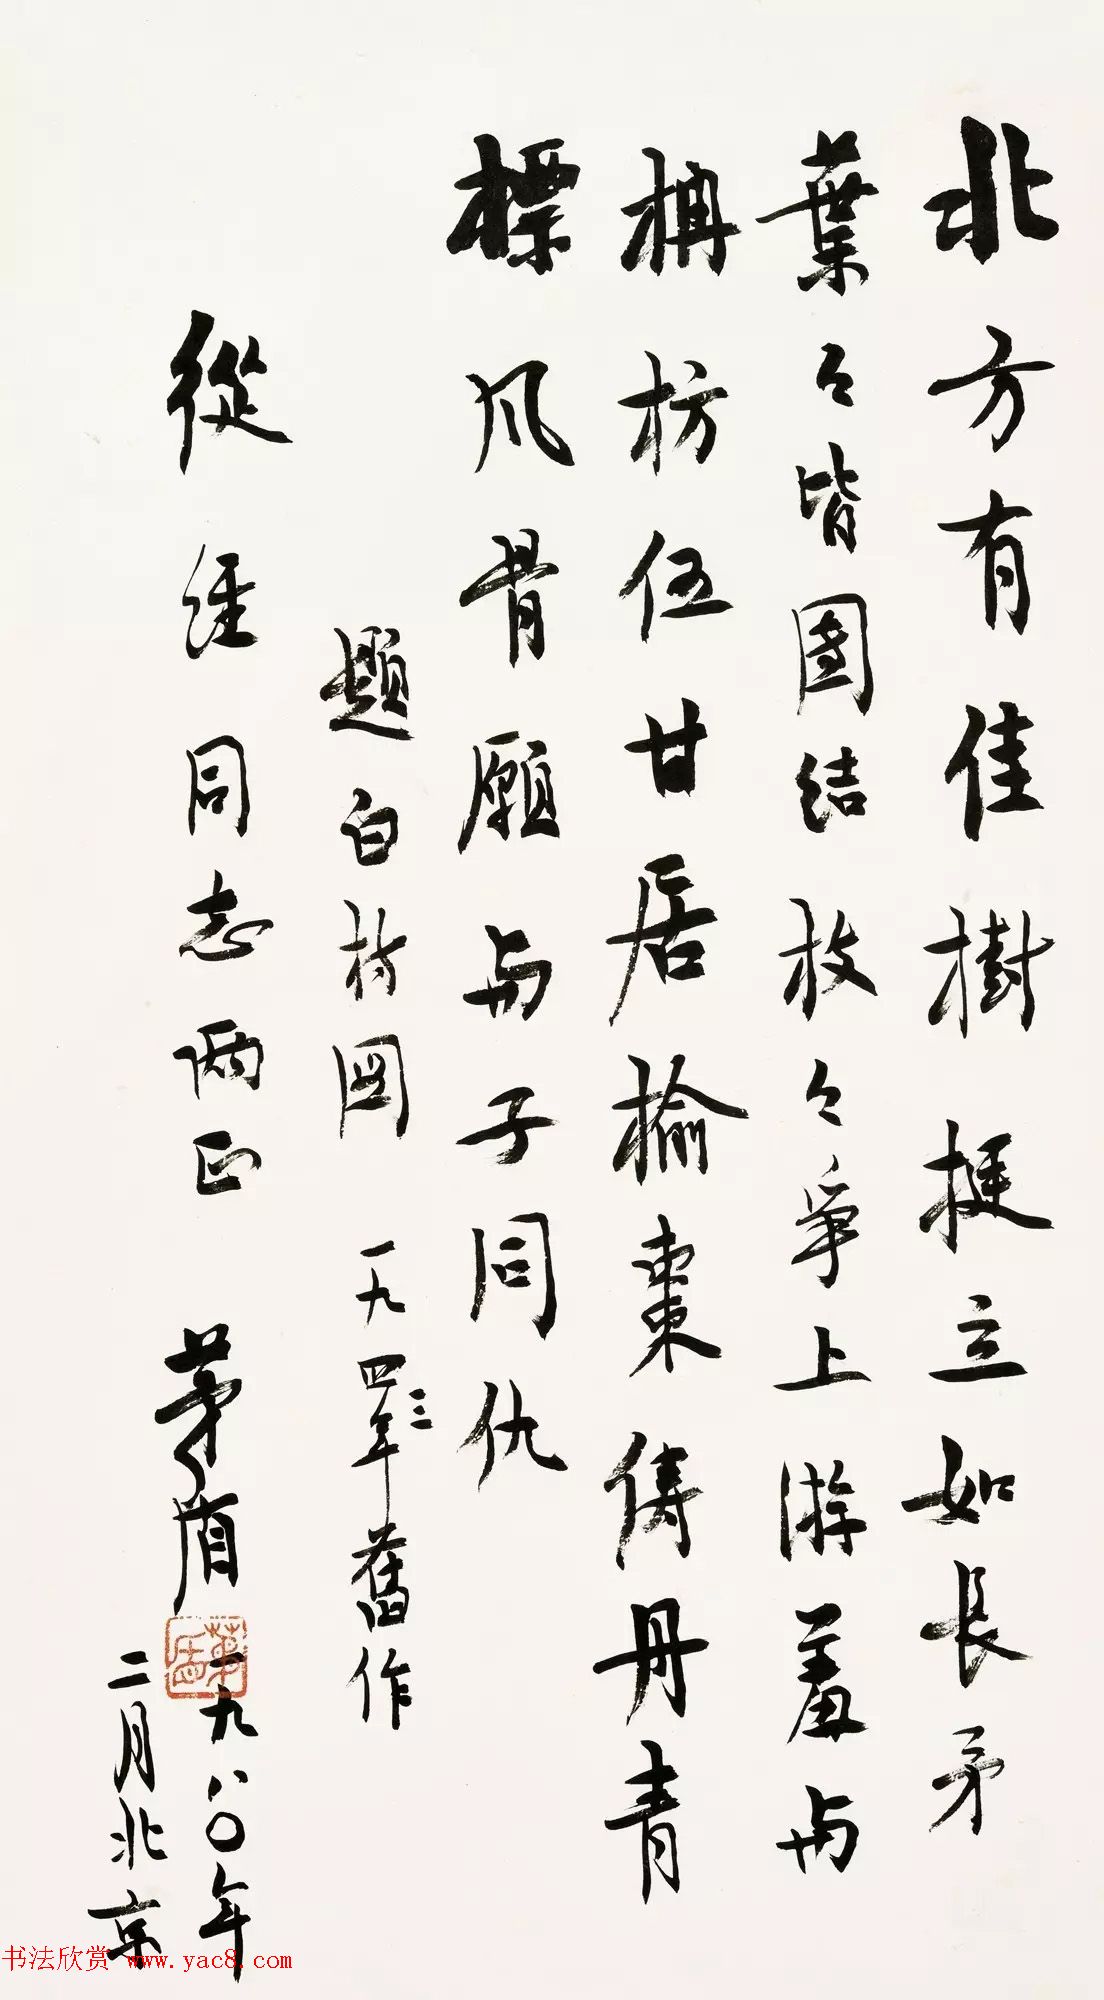 北方有佳樹挺立如長矛
葉々皆團結枝々爭上游羞与
楠枋伍甘居榆棗儔丹青
標风骨願与子同仇
題白楊图 一九四三年舊作
從經同志两正
茅盾 一九八〇年
二月北京
茅盾
书法欣赏 www.yac8.com